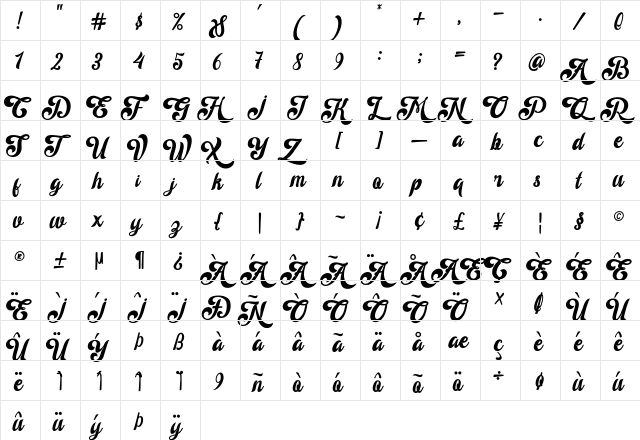 ! " # $ % & ' ( ) * + , - . / 0
1 2 3 4 5 6 7 8 9 : ; = ? @ A B
C D E F G H J I K L M N O P Q R
S T U V W X Y Z [ ] — a b c d e
f g h i j k l m n o p q r s t u
v w x y z { | } ~ ¡ ¢ £ ¥ ¦ § ©
® ± µ ¶ ¿ À Á Â Ã Ä Å Æ Ç È É Ê
Ë Ì Í Î Ï Ð Ñ Ò Ó Ô Õ Ö × Ù Ú
Û Ü Ý þ ß à á â ã ä å æ ç è é ê
ë ì í î ï ñ ò ó ô õ ö ÷ ø ù ú
û ü ý þ ÿ